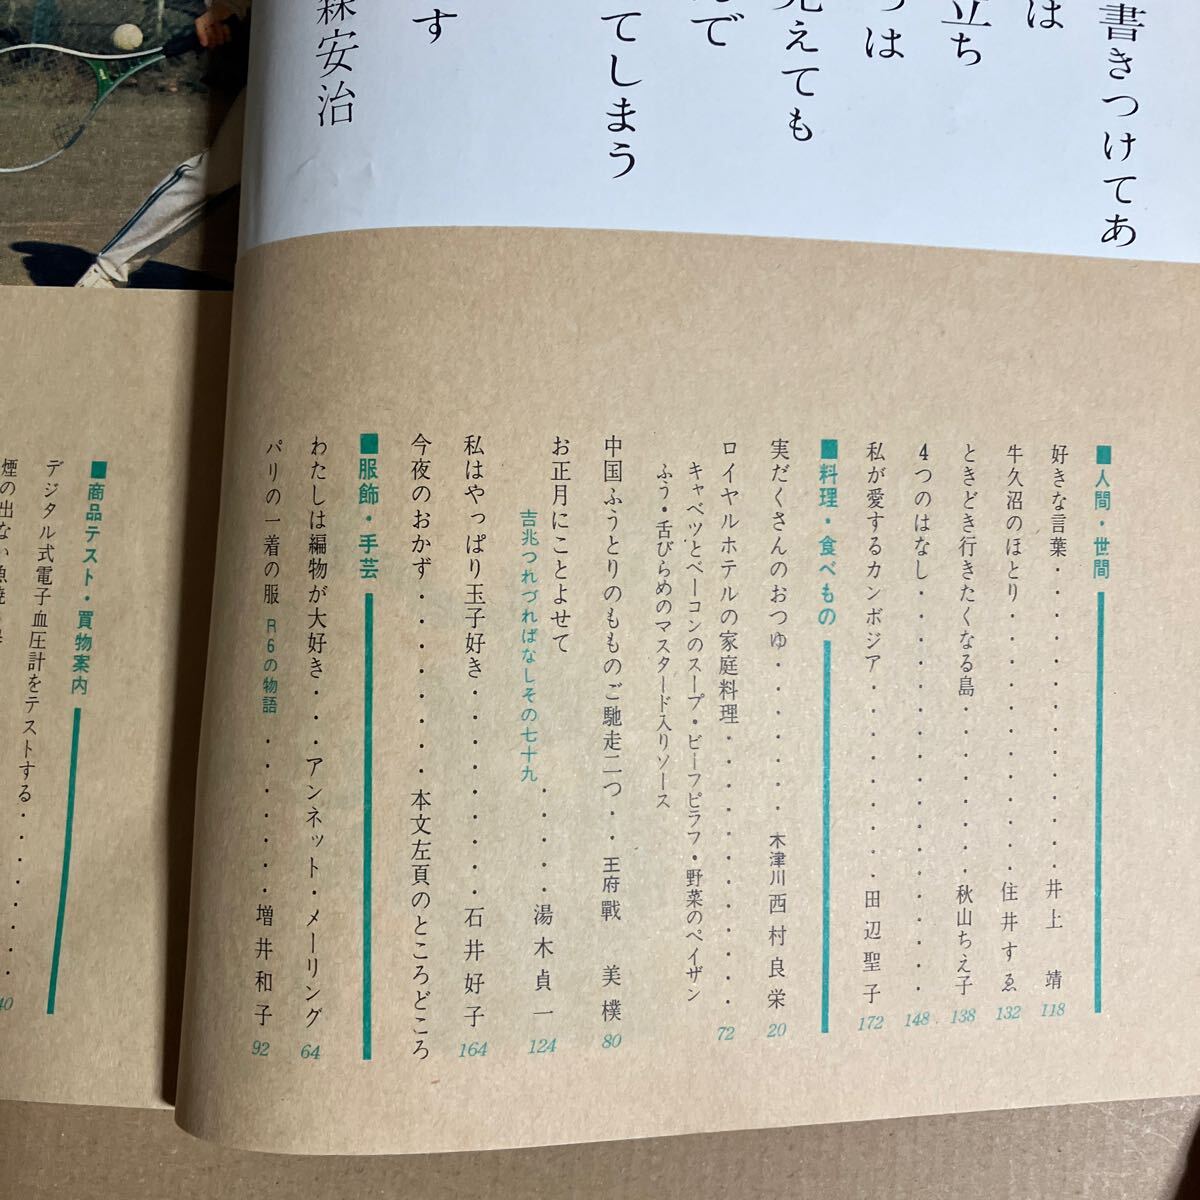 書きつけてあ
は
立ち
つは
見えても
んで
てしまう
す
森安治
■人間・世間
好きな言葉・・・・・・・・・・・井上 靖 118
牛久沼のほとり・・・・・・・・・住井すゑ 132
ときどき行きたくなる島・・・・・秋山ちえ子 138
4つのはなし・・・・・・・・・・・・・ 148
私が愛するカンボジア・・・・・・田辺聖子 172
■料理・食べもの
実だくさんのおつゆ・・・・・木津川 西村良栄 20
ロイヤルホテルの家庭料理・・・・・・・・・ 72
キャベツとベーコンのスープ・ビーフピラフ・野菜のペイザン
ふう・舌びらめのマスタード入りソース
中国ふうとりのもものご馳走二つ・・王府 戰 美樸 80
お正月にことよせて
吉兆つれづればなしその七十九・・・・湯木貞一 124
私はやっぱり玉子好き・・・・・・石井好子 164
今夜のおかず・・・・・・・本文左頁のところどころ
■服飾・手芸
わたしは編物が大好き・・・アンネット・メーリング 64
パリの一着の服 R6の物語・・・・・・増井和子 92
■商品テスト・買物案内
デジタル式電子血圧計をテストする・・・・・・
煙の出ない魚焼き器
40